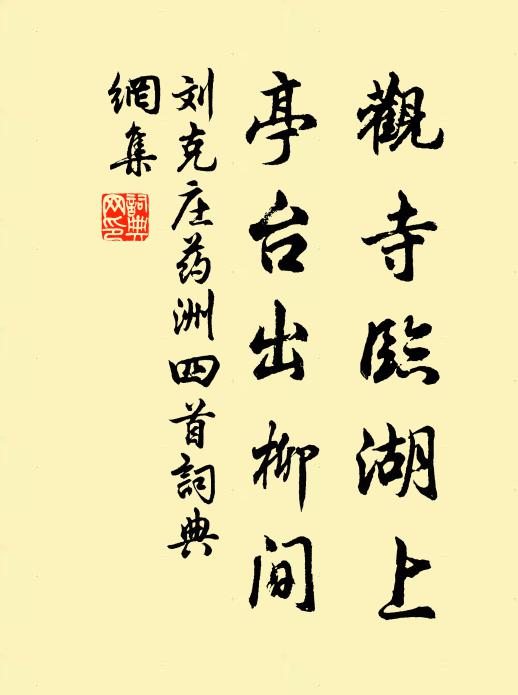 觀寺臨湖上
亭台出柳間
刘克庄药洲四首詞典
網集
詞典
网印